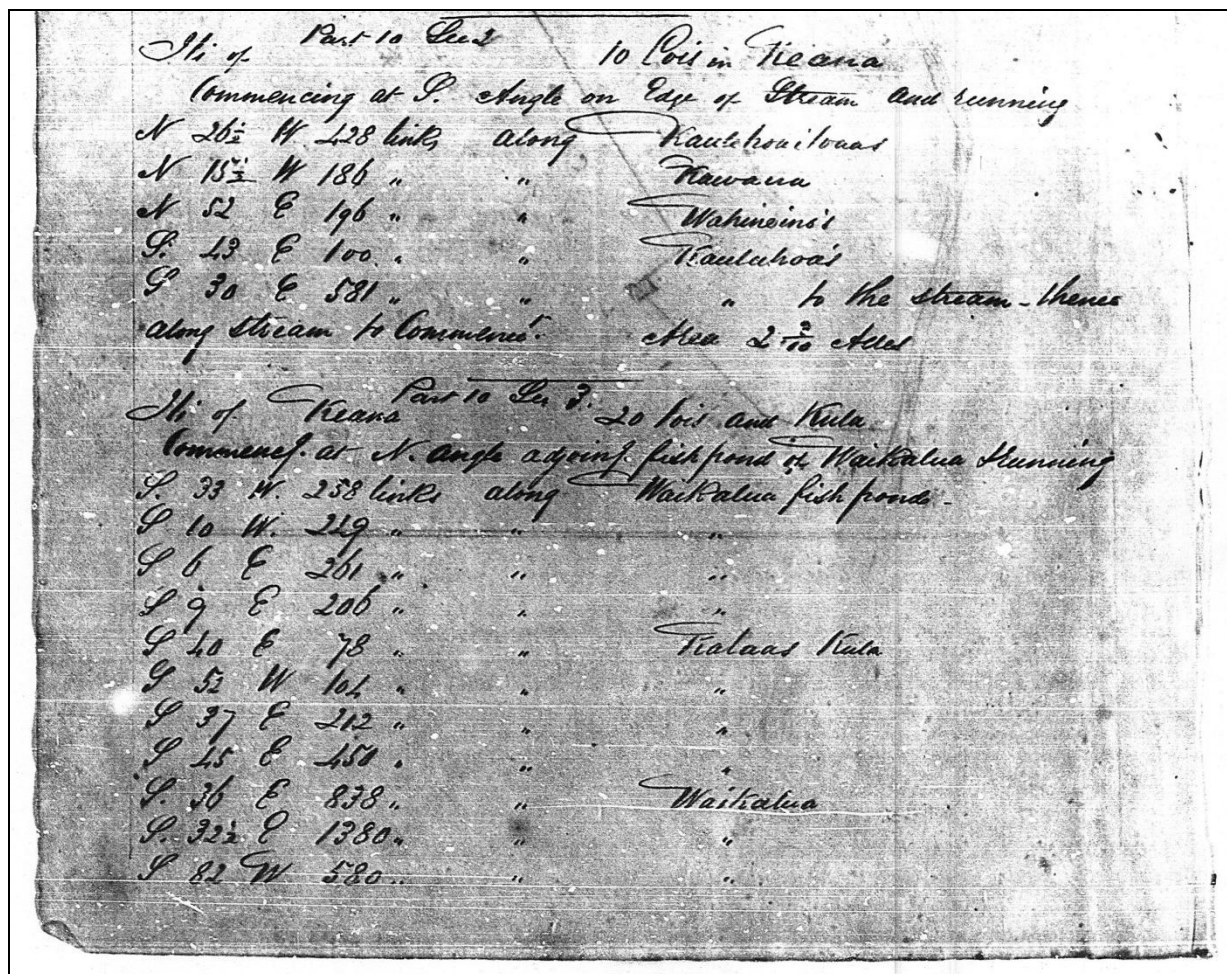 Part 10 Sec 2
Ili of 10 Lois in Keana
Commencing at S. Angle on Edge of Stream and running
N 26½ W 428 links along
N 15½ W 186 " " Kawana
N 52 E 196 " " Wahineino's
S. 43 E 100 " " Kaulahoa's
S 30 E 581 " " " to the stream - thence
along stream to Commenct. Area 2 9/10 Acres
Part 10 Sec 3.
Ili of Keana 20 lois and Kula
Commencg. at N. angle adjoing. fish pond of Waikalua & running
S. 33 W. 258 links along Waikalua fish ponds -
S 10 W. 229 " " "
S 6 E 261 " " "
S 9 E 206 " " "
S 40 E 78 " " Kalaas Kula
S 52 W 104 " " "
S 37 E 212 " " "
S 45 E 450 " " "
S. 36 E 838 " " Waikalua
S. 32½ E 1380 " " "
S 82 W 580 " " "